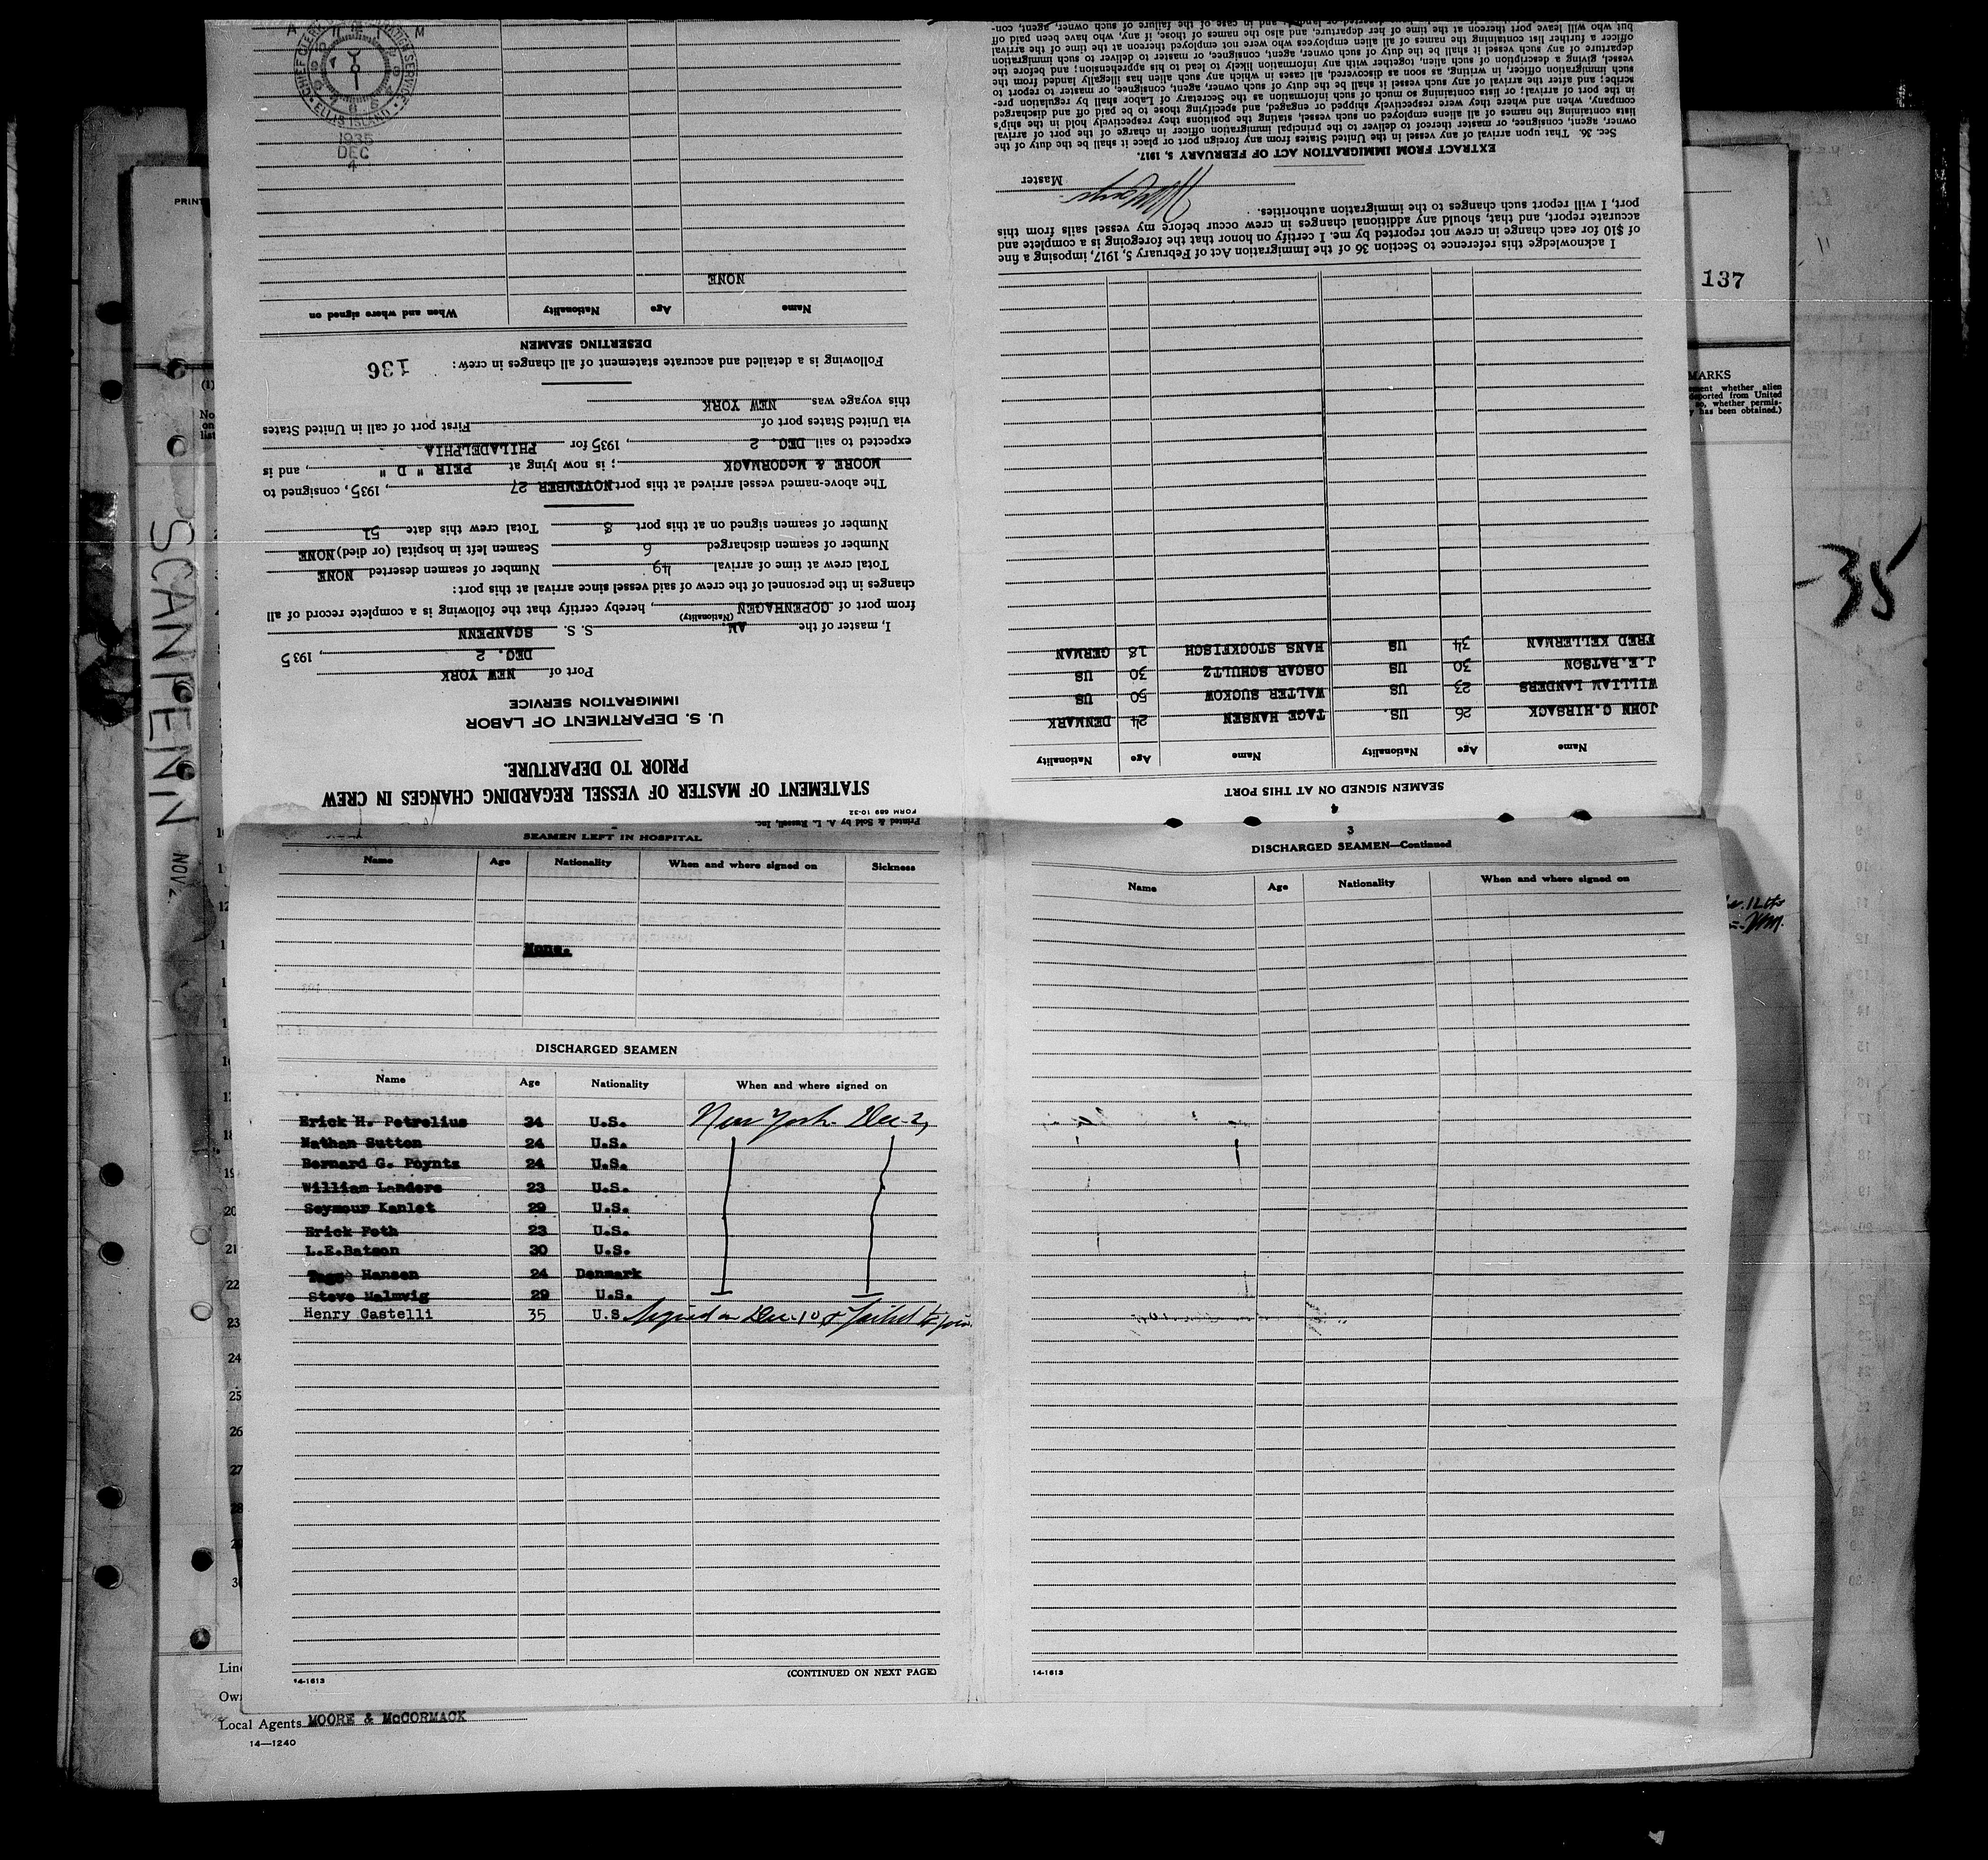 Printed & Sold by A. L. Russell, Inc.
FORM 689 10-32
STATEMENT OF MASTER OF VESSEL REGARDING CHANGES IN CREW
PRIOR TO DEPARTURE.
U. S. DEPARTMENT OF LABOR
IMMIGRATION SERVICE
Port of NEW YORK
DEC. 2, 1935
I, master of the AM. S. S. SCANPENN
(Nationality)
from port of COPENHAGEN, hereby certify that the following is a complete record of all
changes in the personnel of the crew of said vessel since arrival at this port:
Total crew at time of arrival 49 Number of seamen deserted NONE
Number of seamen discharged 6 Seamen left in hospital (or died) NONE
Number of seamen signed on at this port 8 Total crew this date 51
The above-named vessel arrived at this port NOVEMBER 27, 1935, consigned to
MOORE & McCORMACK; is now lying at PEIR " D ", and is
expected to sail DEC. 2, 1935 for PHILADELPHIA
via United States port of First port of call in United States
this voyage was NEW YORK
Following is a detailed and accurate statement of all changes in crew:
136
DESERTING SEAMEN
Name Age Nationality When and where signed on
NONE
ELLIS ISLAND
1935
DEC
4
4
SEAMEN SIGNED ON AT THIS PORT
Name Age Nationality Name Age Nationality
JOHN C.HIRSACK 26 US. TAGE HANSEN 24 DENMARK
WILLIAM LANDERS 23 US WALTER SUCKOW 50 US
J.E.BATSON 30 US OSCAR SCHULTZ 30 US
FRED KELLERMAN 34 US HANS STOCKFISCH 18 GERMAN
I acknowledge this reference to Section 36 of the Immigration Act of February 5, 1917, imposing a fine
of $10 for each change in crew not reported by me. I certify on honor that the foregoing is a complete and
accurate report, and that, should any additional changes in crew occur before my vessel sails from this
port, I will report such changes to the immigration authorities.
Master
EXTRACT FROM IMMIGRATION ACT OF FEBRUARY 5, 1917.
Sec. 36. That upon arrival of any vessel in the United States from any foreign port or place it shall be the duty of the
owner, agent, consignee, or master thereof to deliver to the principal immigration officer in charge of the port of arrival
lists containing the names of all aliens employed on such vessel, stating the positions they respectively hold in the ship's
company, when and where they were respectively shipped or engaged, and specifying those to be paid off and discharged
in the port of arrival; or lists containing so much of such information as the Secretary of Labor shall by regulation pre-
scribe; and after the arrival of any such vessel it shall be the duty of such owner, agent, consignee, or master to report to
such immigration officer, in writing, as soon as discovered, all cases in which any such alien has illegally landed from the
vessel, giving a description of such alien, together with any information likely to lead to his apprehension; and before the
departure of any such vessel it shall be the duty of such owner, agent, consignee, or master to deliver to such immigration
officer a further list containing the names of all alien employees who were not employed thereon at the time of the arrival
but who will leave port thereon at the time of her departure, and also the names of those, if any, who have been paid off
SEAMEN LEFT IN HOSPITAL
Name Age Nationality When and where signed on Sickness
None.
DISCHARGED SEAMEN
Name Age Nationality When and where signed on
Erick H. Petrelius 24 U.S. New York. Dec. 2,
Nathan Sutton 24 U.S.
Bernard G. Poynts 24 U.S.
William Landers 23 U.S.
Seymour Kanlet 29 U.S.
Erick Foth 23 U.S.
L.E.Batson 30 U.S.
Tage Hansen 24 Denmark
Steve Malmvig 29 U.S.
Henry Castelli 35 U.S. Signed on Dec. 10 & failed to join
(CONTINUED ON NEXT PAGE)
14-1613
3
DISCHARGED SEAMEN—Continued
Name Age Nationality When and where signed on
14-1613
Local Agents MOORE & McCORMACK
14—1240
SCANPENN NOV. 2
137
-35